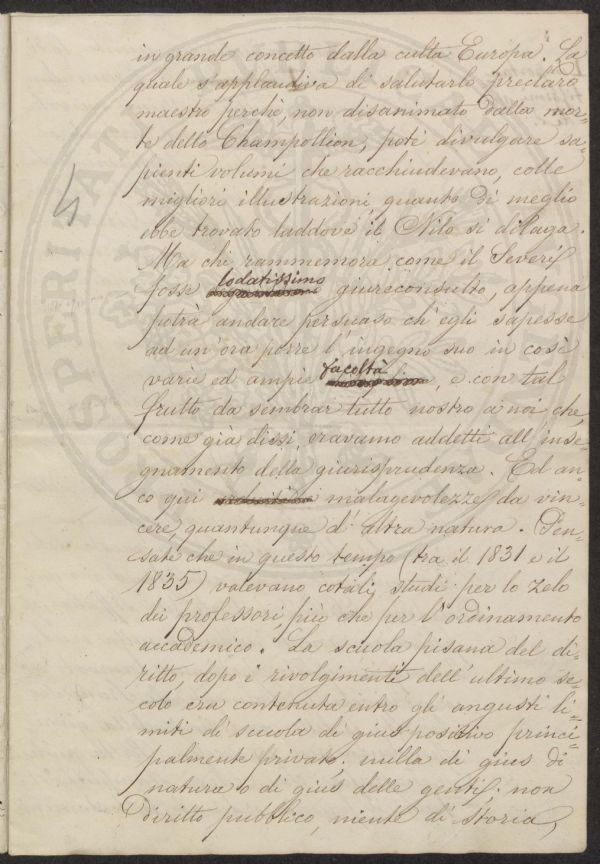 in grande concetto dalla culta Europa. La
quale s'applaudiva di salutarlo preclaro
maestro perchè, non disanimato dalla mor-
te dello Champollion, potè divulgare sa-
pienti volumi che racchiudevano, colle
migliori illustrazioni, quanto di meglio
ebbe trovato laddove il Nilo si dilaga.
Ma chi rammemora come il Severi
fosse lodatissimo giureconsulto, appena
potrà andare persuaso ch'egli sapesse
ad un'ora porre l'ingegno suo in così
varie ed ampie facoltà, e con tal
frutto da sembrar tutto nostro a noi che,
come già dissi, eravamo addetti all'inse-
gnamento della giurisprudenza. Ed an-
co qui malagevolezze da vin-
cere, quantunque d'altra natura. Pen-
sate che in questo tempo (tra il 1831 e il
1835) valevano cotali studi per lo zelo
dei professori più che per l'ordinamento
accademico. La scuola pisana del di-
ritto, dopo i rivolgimenti dell'ultimo se-
colo era contenuta entro gli angusti li-
miti di scuola di gius positivo princi-
palmente privato; nulla di gius di
natura o di gius delle genti; non
Diritto pubblico, niente di Storia,